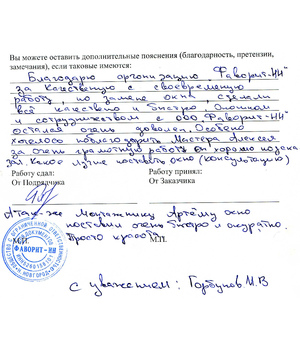 Вы можете оставить дополнительные пояснения (благодарность, претензии,
замечания), если таковые имеются:
Благодарю организацию "Фаворит-НН"
за качественную с своевременную
работу, по замене окна, сделали
всё качествено и быстро. Окончил
и сотрудничеством с ООО "Фаворит-НН"
остался очень доволен. Особено
хотелось поблагодарить Мастера Алексея
за очень грамотную работу он хорошо
зал. Какое лучше поставить окно (консультацию)
Работу сдал: Работу принял:
От Подрядчика От Заказчика
А так-же Монтажнику Артёму окно
поставил очень быстро и аккуратно.
Просто красота
М.П. М.П.
ФАВОРИТ-НН
с уважением: Горбунов М.В